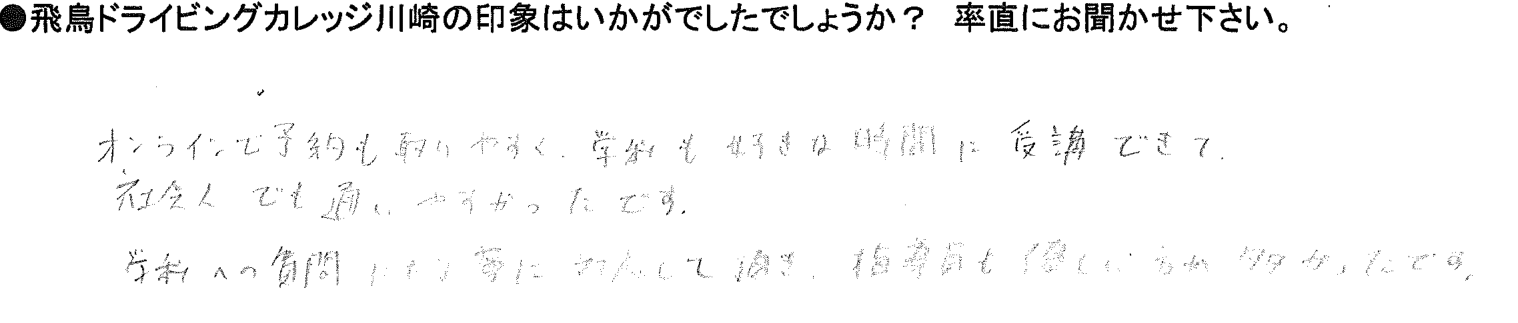 ●飛鳥ドライビングカレッジ川崎の印象はいかがでしたでしょうか? 率直にお聞かせ下さい。
オンラインで予約も取りやすく、学科も好きな時間に受講できて、
社会人でも通いやすかったです。
学科への質問にも丁寧に対応して頂き、指導員も優しい方が多かったです。